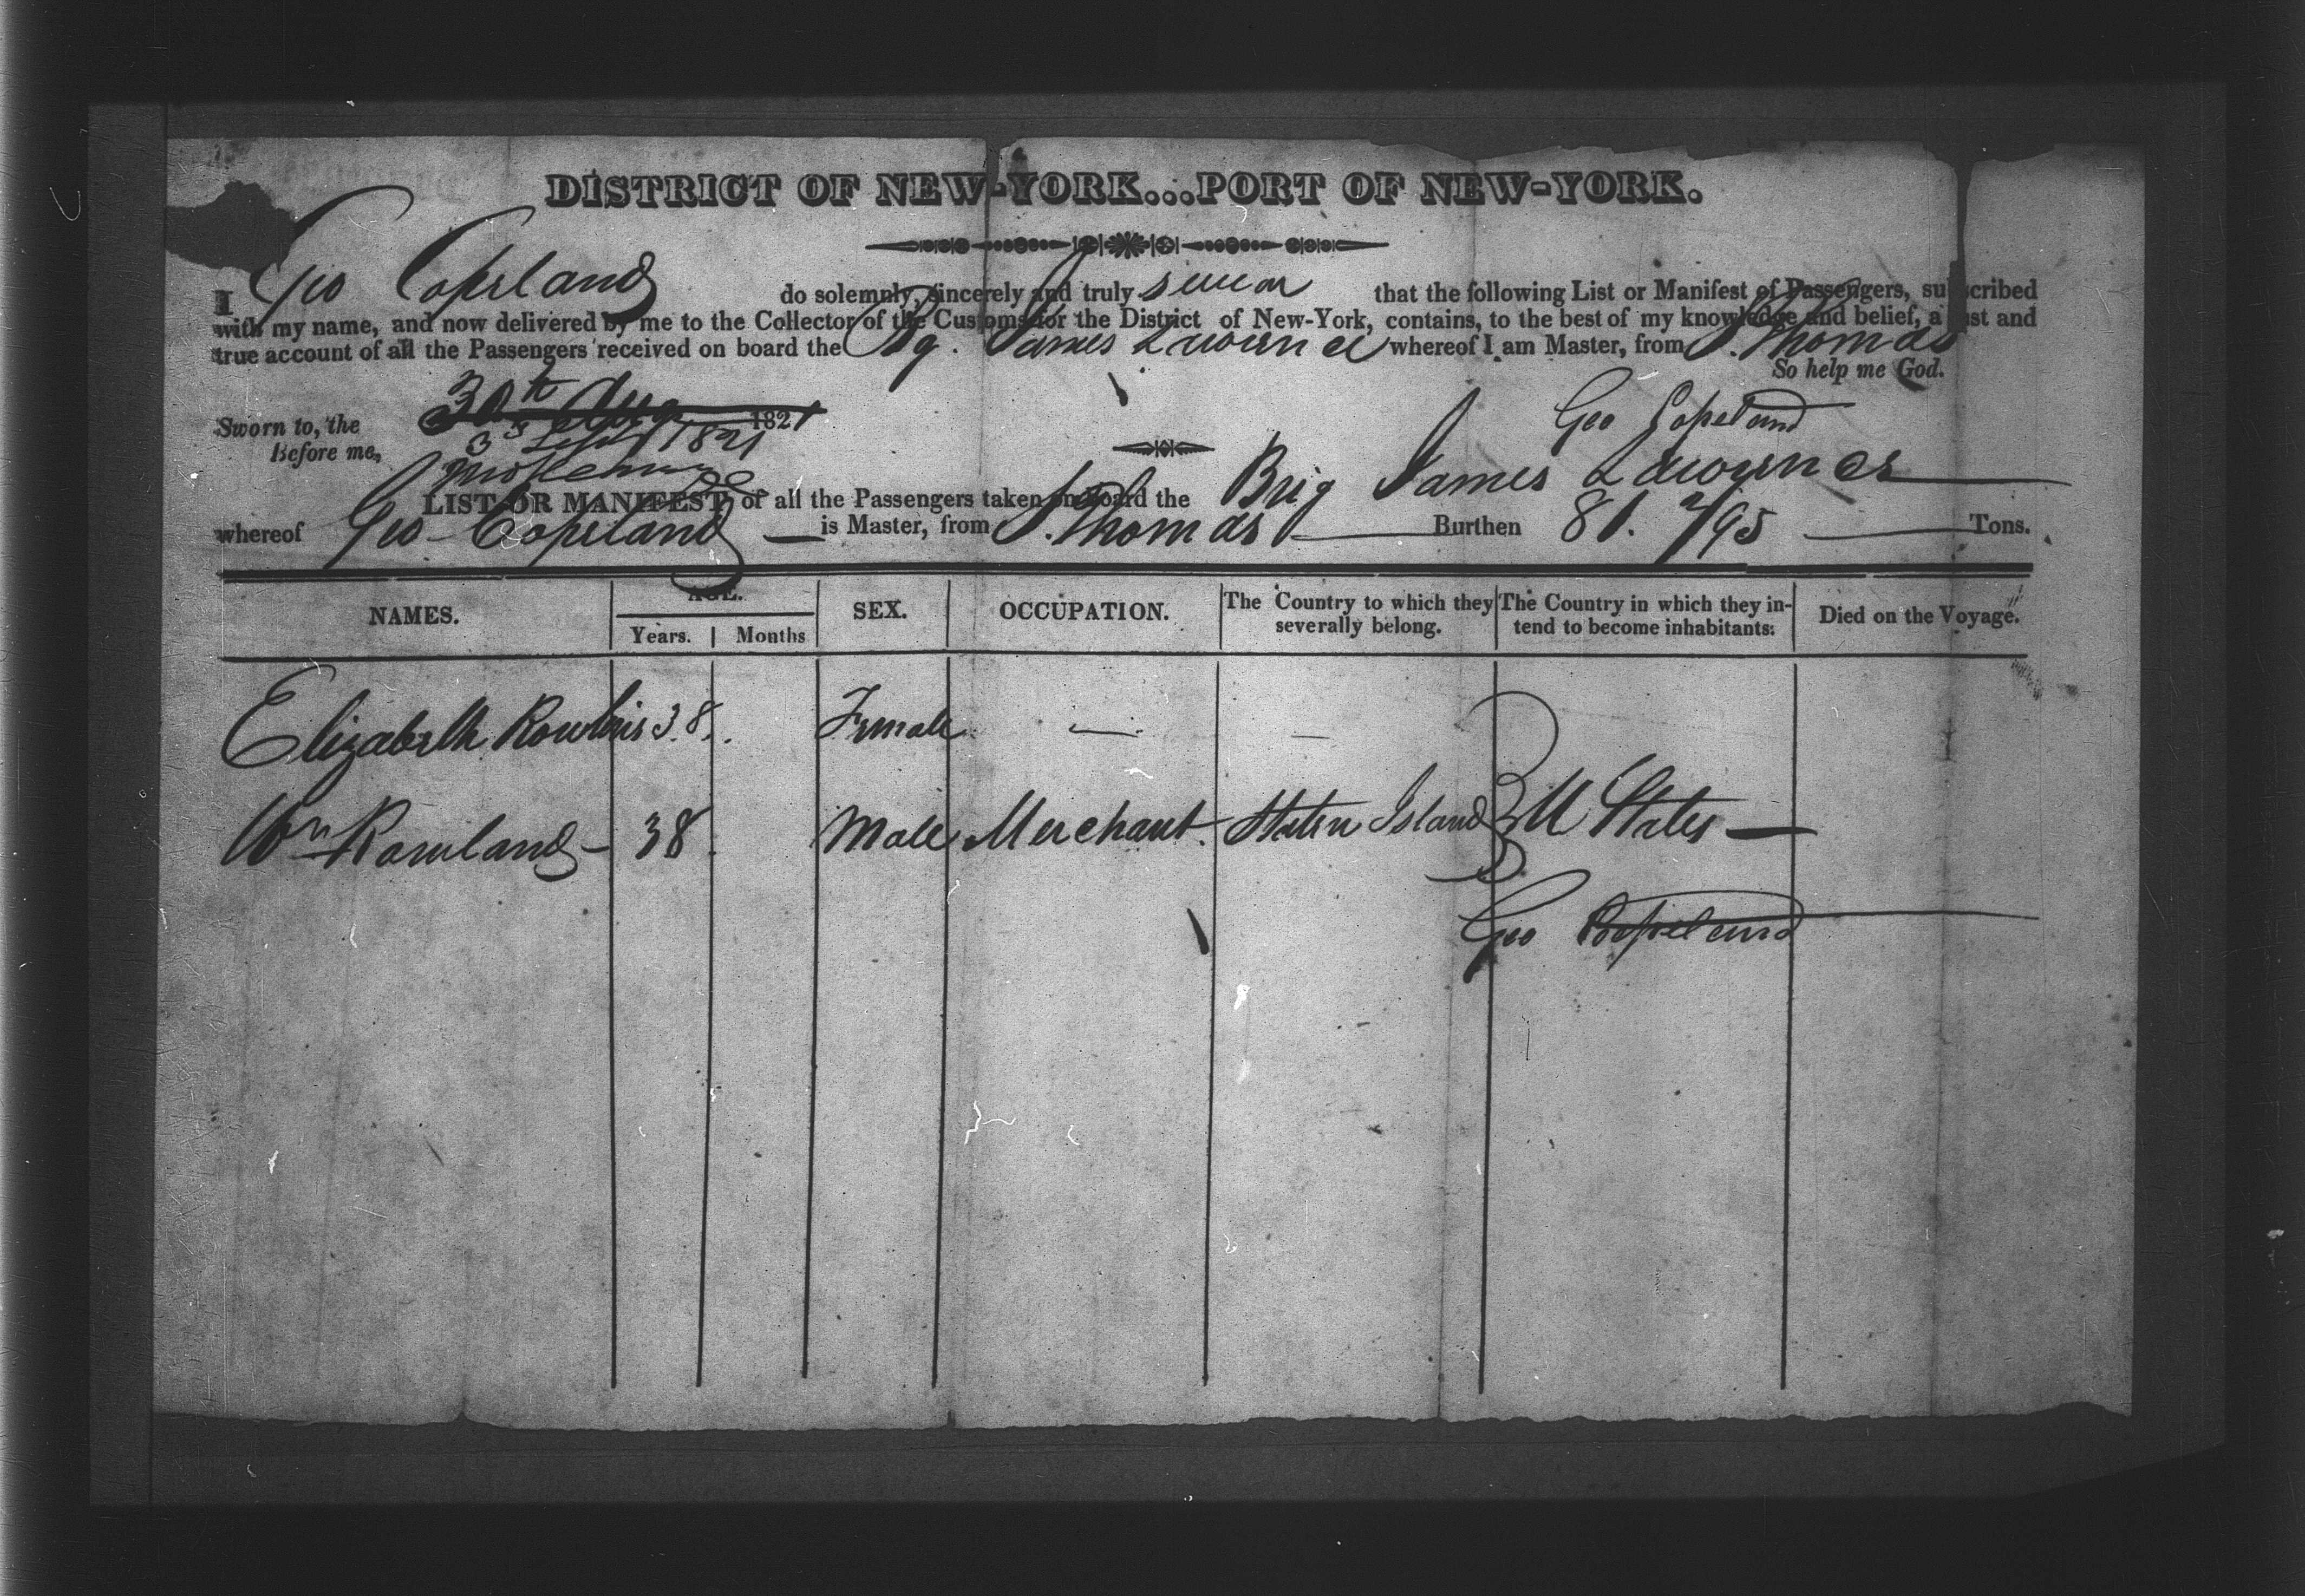 DISTRICT OF NEW-YORK...PORT OF NEW-YORK.
I Geo Copeland do solemnly, sincerely and truly swear that the following List or Manifest of Passengers, subscribed
with my name, and now delivered by me to the Collector of the Customs for the District of New-York, contains, to the best of my knowledge and belief, a just and
true account of all the Passengers received on board the Bg. James Lawrence whereof I am Master, from St. Thomas
So help me God.
Sworn to, the 30th Aug 1821
3d Sept 1821
Before me,
Geo Copeland
LIST OR MANIFEST of all the Passengers taken on board the Brig James Lawrence
whereof Geo Copeland is Master, from St. Thomas Burthen 81. 2/95 Tons.
NAMES. AGE. SEX. OCCUPATION. The Country to which they severally belong. The Country in which they intend to become inhabitants. Died on the Voyage.
Years. Months
Elizabeth 38. Female — —
Wm Rowland – 38. Male Merchant. Staten Island U States —
Geo Copeland